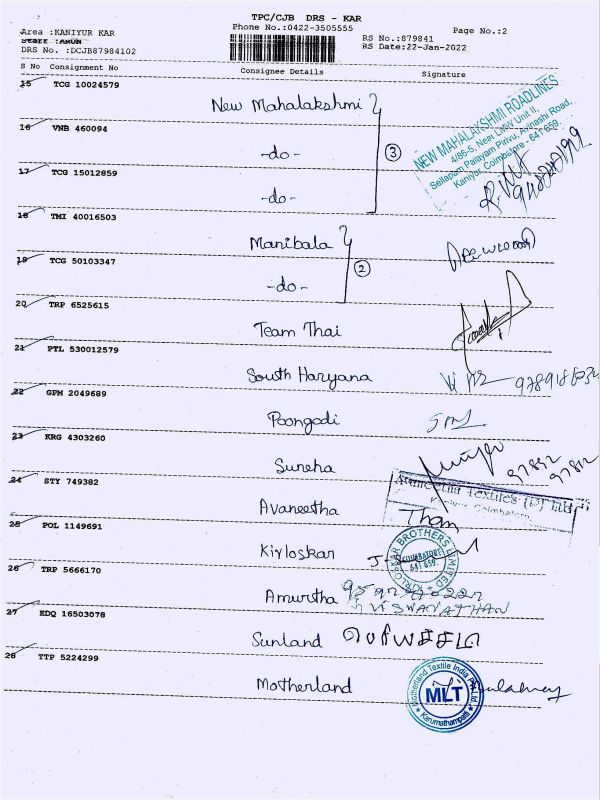 TPC/CJB DRS - KAR
Area :KANIYUR KAR
Phone No.:0422-3505555
Page No.:2
Staff :ARUN
RS No.:879841
DRS No. :DCJB87984102
RS Date:22-Jan-2022
S No Consignment No Consignee Details Signature
15 TCG 10024579
New Mahalakshmi
NEW MAHALAKSHMI ROADLINES
4/86-5, Near LMW Unit II,
Sellapam Palayam Pirivu, Avinashi Road,
Kaniyur, Coimbatore - 641 659.
16 VNB 460094
-do-
3
17 TCG 15012859
-do-
18 TMI 40016503
Manibala
19 TCG 50103347
2
-do-
20 TRP 6525615
Team Thai
21 PTL 530012579
South Haryana
22 GPM 2049689
Poongodi
23 KRG 4303260
Suneha
24 STY 749382
Avaneetha Textiles (P) Ltd
Avaneetha
25 POL 1149691
Kirloskar
KIRLOSKAR BROTHERS LIMITED
COIMBATORE
641 659.
26 TRP 5666170
Amirtha
VISWANATHAN
27 EDQ 16503078
Sunland
28 TTP 5224299
Motherland
Motherland Textile India Pvt Ltd
MLT
Karumathampatti